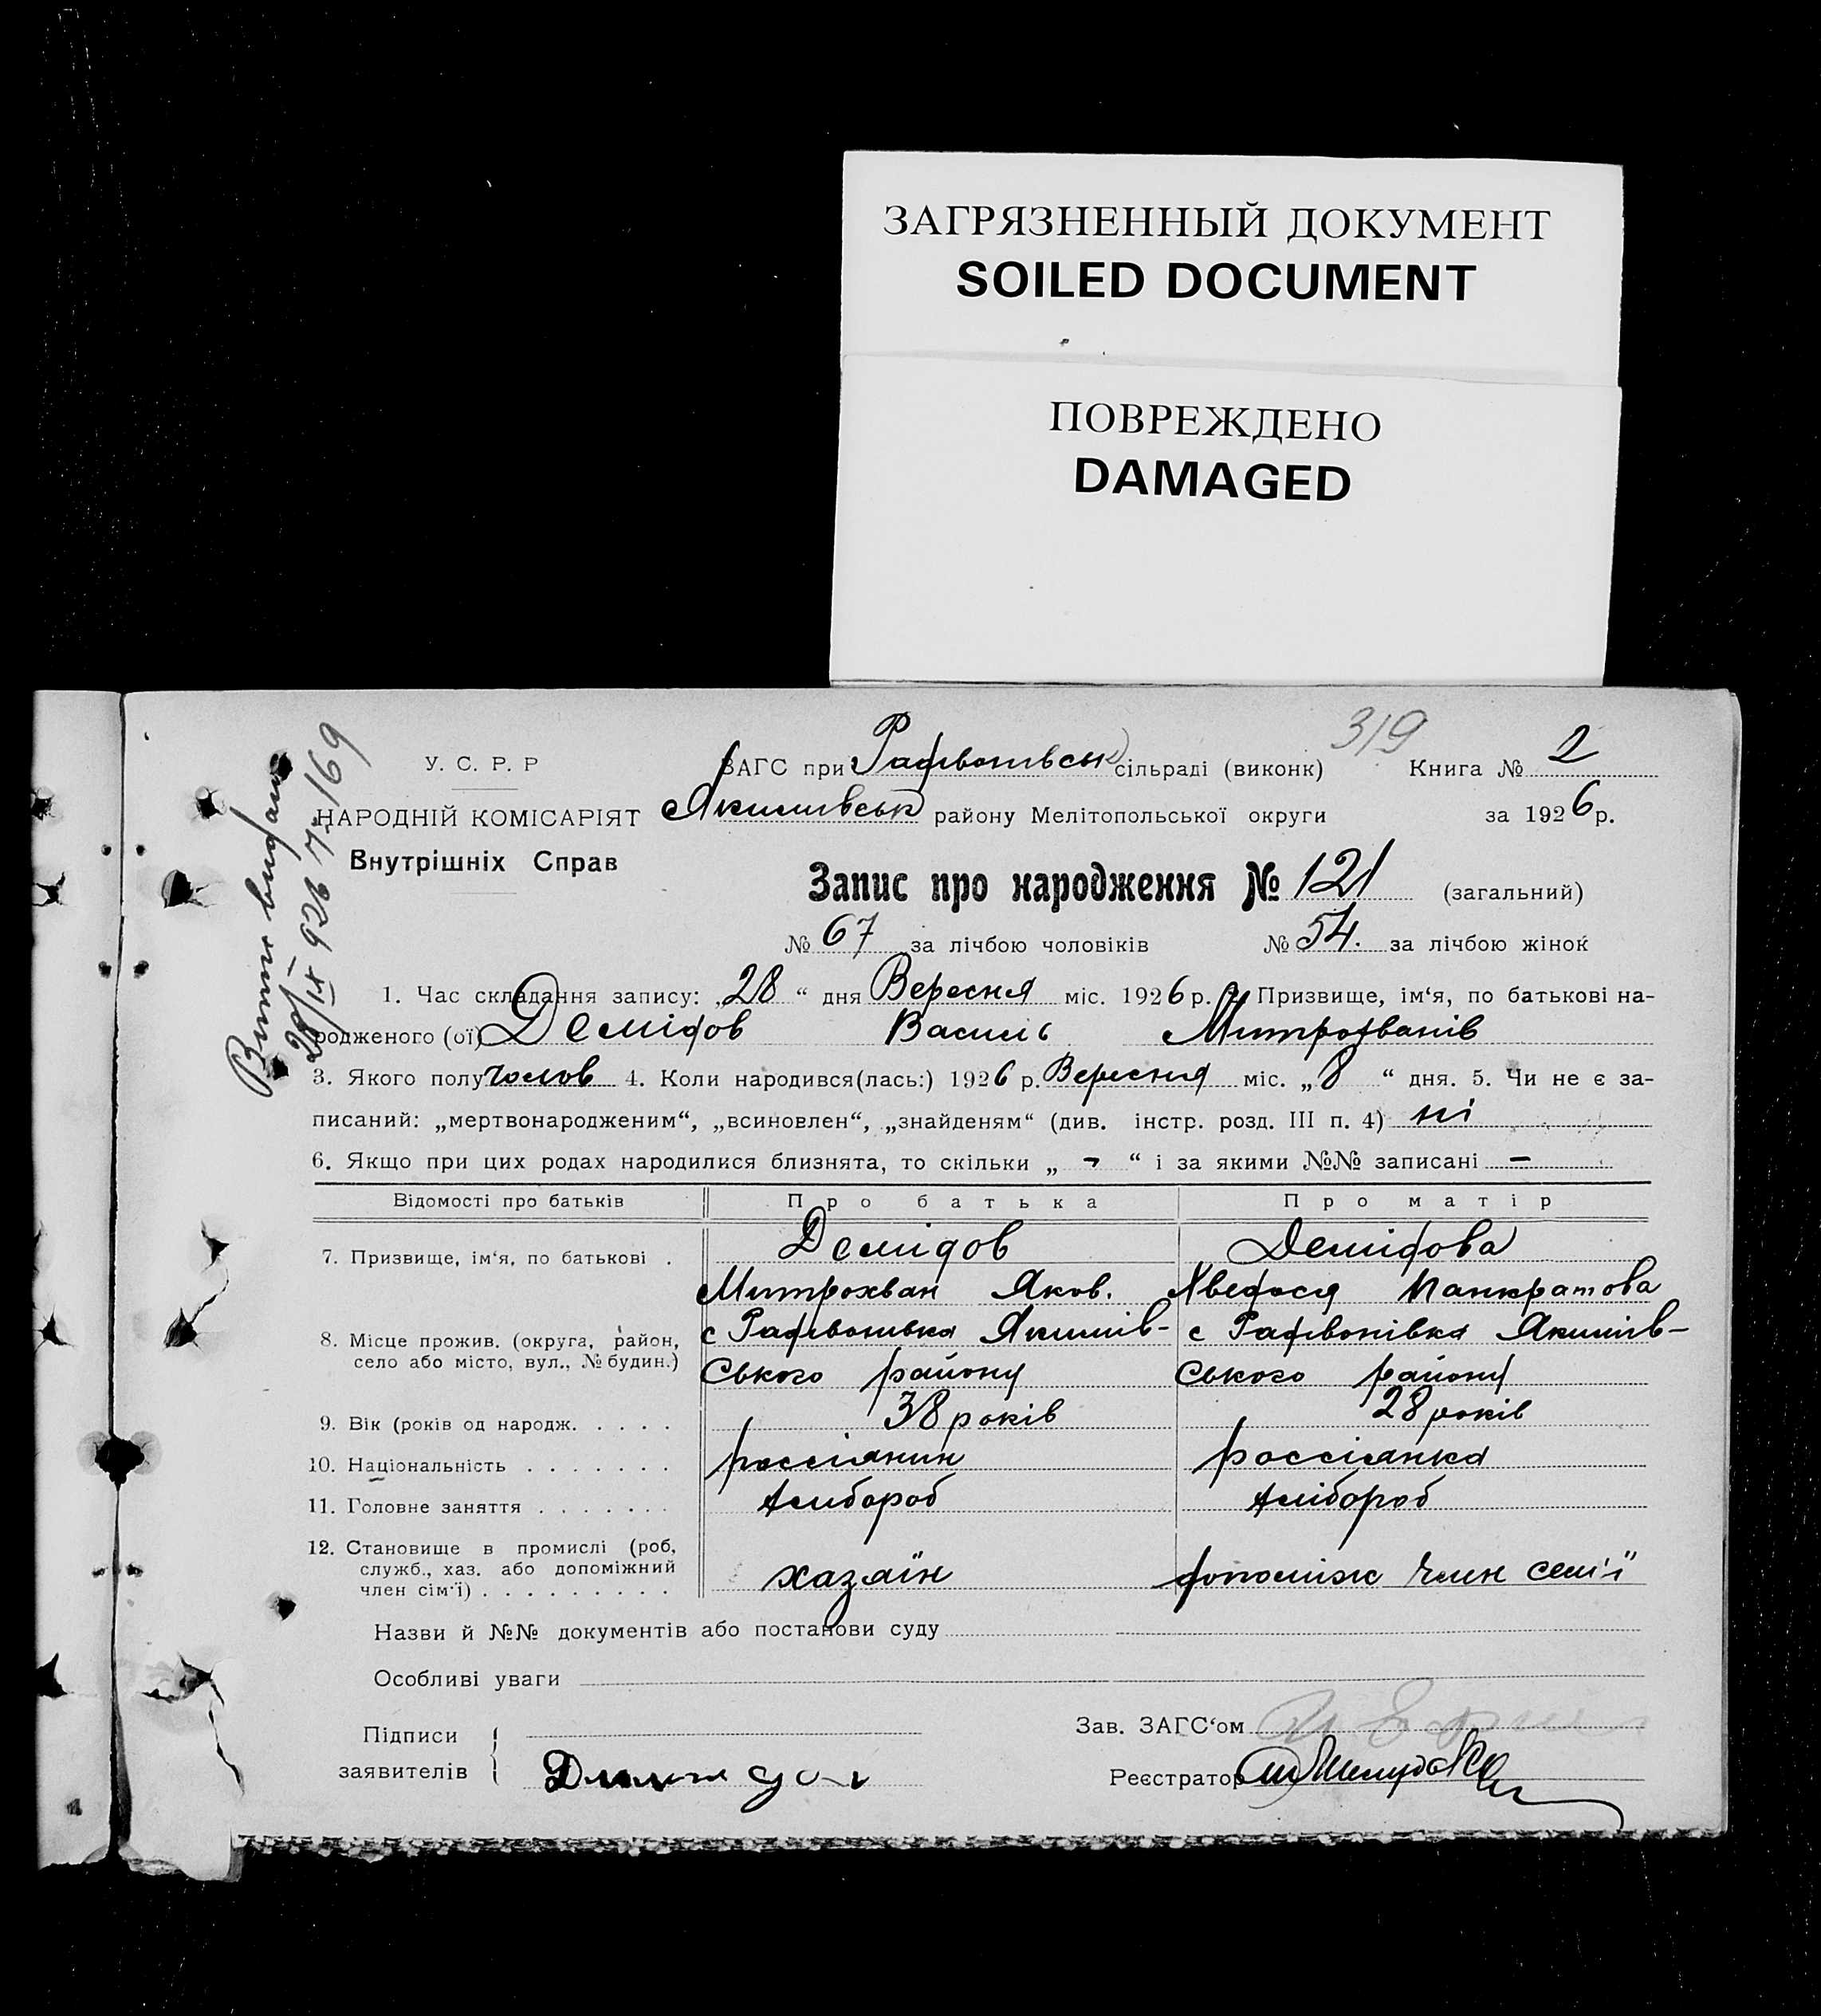 ЗАГРЯЗНЕННЫЙ ДОКУМЕНТ
SOILED DOCUMENT
ПОВРЕЖДЕНО
DAMAGED
319
У. С. Р. Р
ЗАГС при Радівонивськ сільраді (виконк) Книга № 2
НАРОДНІЙ КОМІСАРІЯТ Якимивськ району Мелітопольської округи за 1926 р.
Внутрішніх Справ
Запис про народження № 121 (загальний)
№ 67 за лічбою чоловіків № 54. за лічбою жінок
Витяг видано
28/IX 926 169
1. Час складання запису: „28“ дня Вересня міс. 1926 р. 2. Призвище, ім‘я, по батькові на-
родженого (ої) Демідов Василь Митрофванів
3. Якого полу чолов 4. Коли народився(лась:) 1926 р. Вересня міс. „8“ дня. 5. Чи не є за-
писаний: „мертвонародженим“, „всиновлен“, „знайденям“ (див. інстр. розд. III п. 4) ні
6. Якщо при цих родах народилися близнята, то скільки „ - “ і за якими №№ записані -
Відомості про батьків Про батька Про матір
7. Призвище, ім‘я, по батькові . Демідов Демідова
Митрохван Яков. Хведося Панкратова
8. Місце прожив. (округа, район, с Радівонивка Якимів- с Радівонівка Якимів-
село або місто, вул., № будин.) ського району ського району
9. Вік (років од народж. . . . . 38 років 28 років
10. Національність . . . . . . . россіянин россіянка
11. Головне заняття . . . . . . . хлибороб хлібороб
12. Становище в промислі (роб,
служб., хаз. або допоміжний хазаїн допоміж член семї
член сім‘ї) . . . . . . . . .
Назви й №№ документів або постанови суду
Особливі уваги
Підписи Зав. ЗАГС‘ом
заявителів Реєстратор